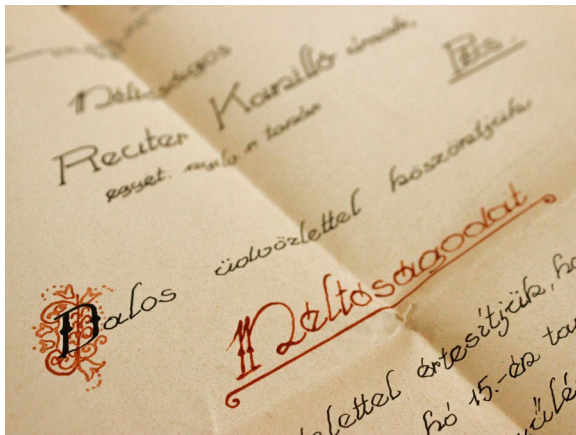 Méltóságos
Reuter Kamilló úrnak,
egyet. ny. r. tanár
Pécs.
Dalos üdvözlettel köszöntjük
Méltóságodat
értesítjük, ho
hó 15.-én ta